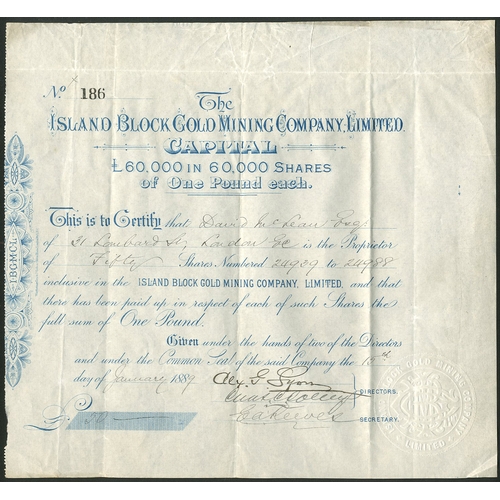 No 186
The
ISLAND BLOCK GOLD MINING COMPANY, LIMITED.
CAPITAL
£60,000 IN 60,000 SHARES
of One Pound each.
This is to Certify that David McLean Esq
of 31 Lombard St, London EC is the Proprietor
of Fifty Shares Numbered 24939 to 24988
inclusive in the ISLAND BLOCK GOLD MINING COMPANY, LIMITED, and that
there has been paid up in respect of each of such Shares the
full sum of One Pound.
Given under the hands of two of the Directors
and under the Common Seal of the said Company the 15th
day of January 1889
DIRECTORS.
SECRETARY.
50
I.B.G.M.C.L.
GOLD
LIMITED